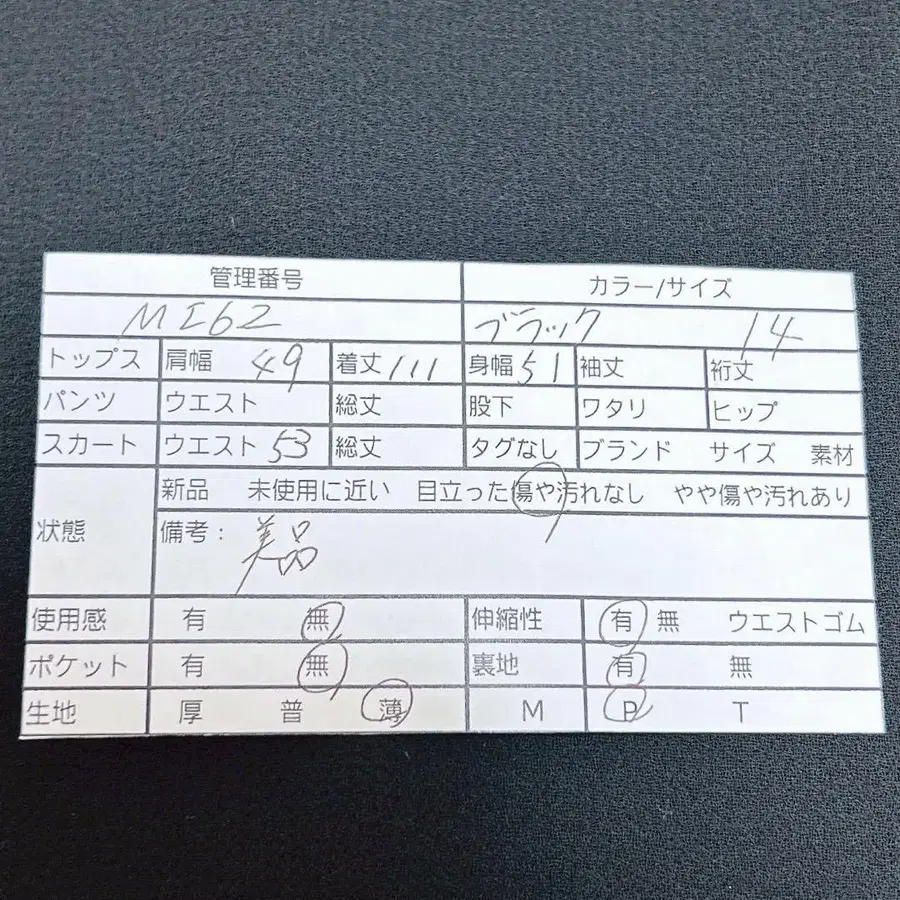 管理番号 カラー/サイズ
MI62 ブラック 14
トップス 肩幅 49 着丈 111 身幅 51 袖丈 裄丈
パンツ ウエスト 総丈 股下 ワタリ ヒップ
スカート ウエスト 53 総丈 タグなし ブランド サイズ 素材
状態 新品 未使用に近い 目立った傷や汚れなし やや傷や汚れあり
備考: 美品
使用感 有 無 伸縮性 有 無 ウエストゴム
ポケット 有 無 裏地 有 無
生地 厚 普 薄 M P T